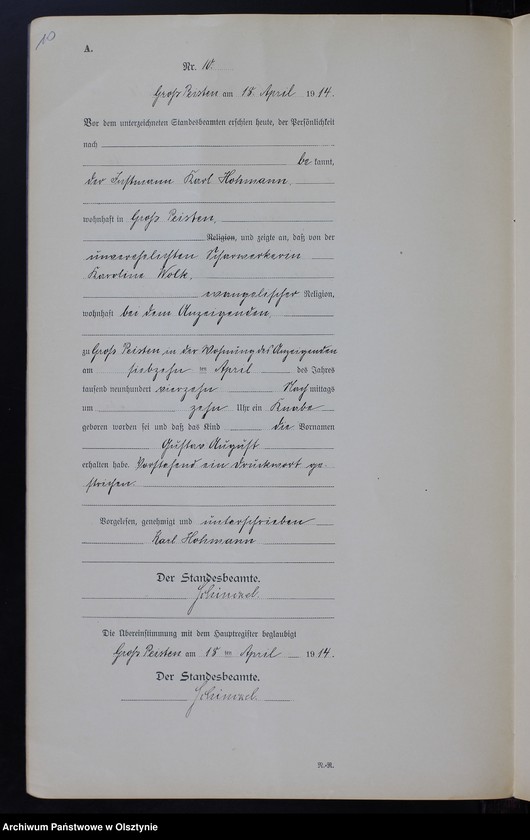 10
A.
Nr. 10.
Groß Peisten am 18. April 1914.
Vor dem unterzeichneten Standesbeamten erschien heute, der Persönlichkeit
nach
be kannt,
der Instmann Karl Hohmann,
wohnhaft in Groß Peisten,
Religion, und zeigte an, daß von der
unverehelichten Scharwerkerin
Karoline Wolk,
evangelischer Religion,
wohnhaft bei dem Anzeigenden,
zu Groß Peisten in der Wohnung des Anzeigenden
am siebzehn ten April des Jahres
tausend neunhundert vierzehn Nach mittags
um zehn Uhr ein Knabe
geboren worden sei und daß das Kind die Vornamen
Gustav August
erhalten habe. Vorstehend ein Druckwort ge-
strichen.
Vorgelesen, genehmigt und unterschrieben
Karl Hohmann
Der Standesbeamte.
Die Übereinstimmung mit dem Hauptregister beglaubigt
Groß Peisten am 18 ten April 1914.
Der Standesbeamte.
N.-R.
Archiwum Państwowe w Olsztynie